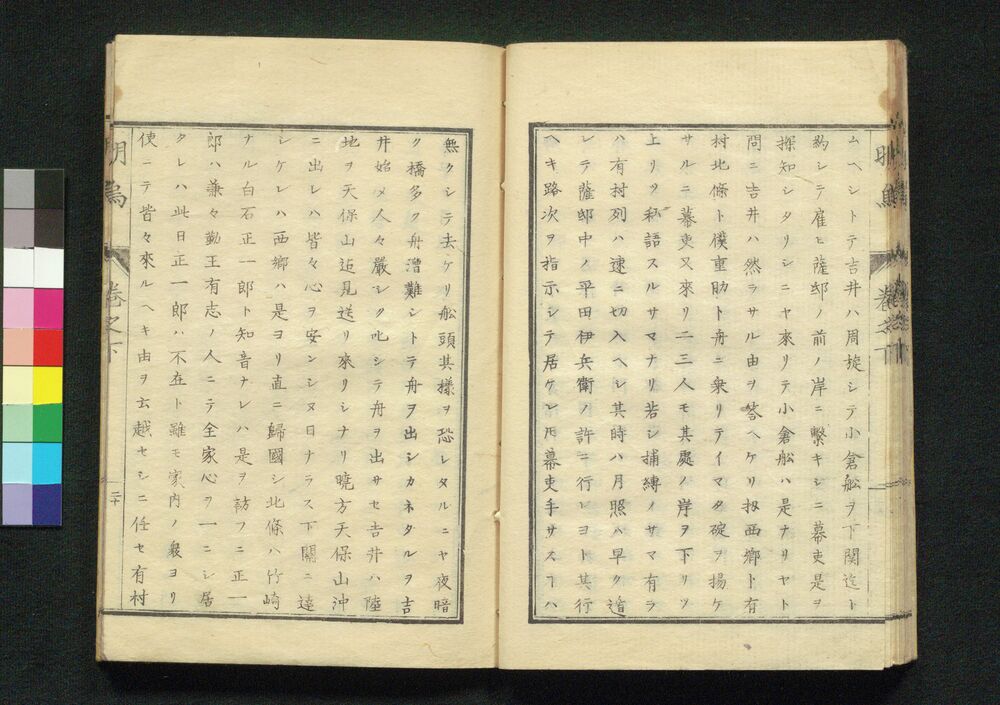 ムヘシトテ吉井ハ周旋シテ小倉舩ヲ下関迄ト
約シテ雇ヒ薩邸ノ前ノ岸ニ繋キシニ幕吏是ヲ
探知シタリシニヤ來リテ小倉舩ハ是ナリヤト
問ニ吉井ハ然ラサル由ヲ答ヘケリ扨西郷ト有
村北條ト僕重助ト舟ニ乗リテイマタ碇ヲ揚ケ
サルニ幕吏又來リ二三人モ其處ノ岸ヲ下リツ
上リツ私語スルサマナリ若シ捕縛ノサマ有ラ
ハ有村列ハ速ニ切入ヘシ其時ハ月照ハ早ク遁
レテ薩邸中ノ平田伊兵衛ノ許ニ行レヨト其行
ヘキ路次ヲ指示シテ居ケレ𪜈幕吏手サスヿハ
無クシテ去ケリ舩頭其様ヲ恐レタルニヤ夜暗
ク橋多ク舟漕難シトテ舟ヲ出シカネタルヲ吉
井始メ人々嚴シク叱シテ舟ヲ出サセ吉井ハ陸
地ヲ天保山迄見送リ來リシナリ曉方天保山沖
ニ出レハ皆々心ヲ安ンシヌ日ナラス下關ニ達
シケレハ西郷ハ是ヨリ直ニ歸國シ北條ハ竹崎
ナル白石正一郎ト知音ナレハ是ヲ訪フニ正一
郎ハ兼々勤王有志ノ人ニテ全家心ヲ一ニシ居
タレハ此日正一郎ハ不在ト雖モ家内ノ衆ヨリ
使ニテ皆々來ルヘキ由ヲ云越セシニ任セ有村
明烏
卷之下
二十